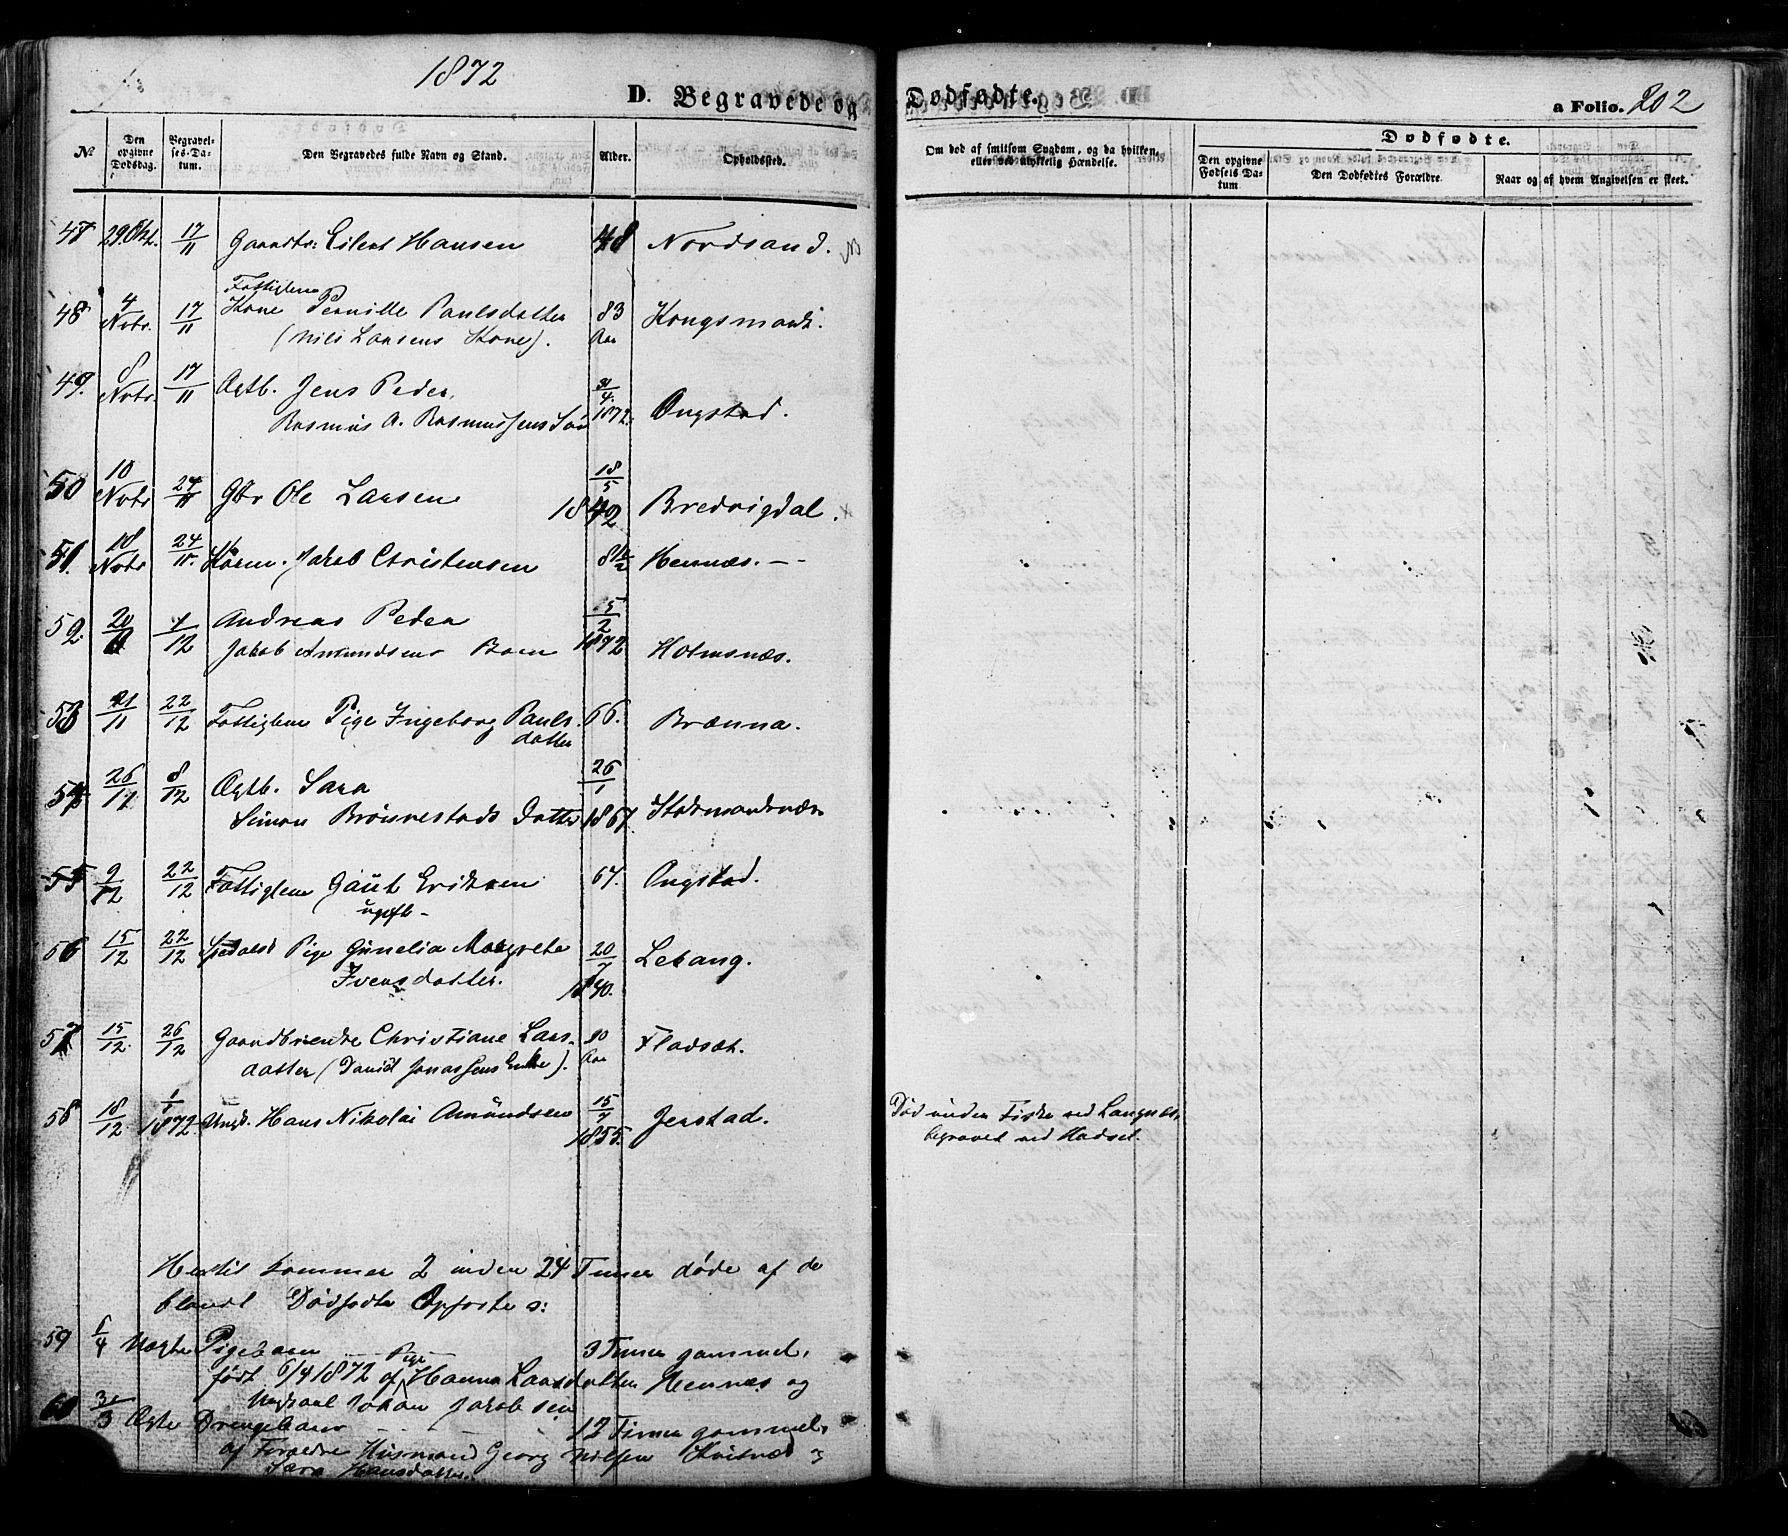 1872
D. Begravede og Dødfødte. a Folio. 202
№ Den opgivne Dødsdag. Begravelses-Datum. Den Begravedes fulde Navn og Stand. Alder. Opholdssted. Om død af smitsom Sygdom, og da hvilken, eller ved ulykkelig Hændelse. Dødfødte.
Den opgivne Fødsels Datum. Den Dødfødtes Forældre. Naar og af hvem Angivelsen er skeet.
47 29 Okt. 17/11 Gaardbr. Eilert Hansen 48 Nordsand.
Fattiglem
48 4 Novbr. 17/11 Kone Pernille Paulsdatter 83 Kongsmark.
(Nils Larsens Kone). Aar
49. 8 Novbr. 17/11 Ægtb. Jens Peder, 31/4.
Rasmus A. Rasmussens Søn 1872. Ongstad.
50 10 Novbr 24/11 Gbr Ole Larsen 18/5 1842 Bredvigdal.
51. 18 Novbr 24/11. Jakob Christensen 81½ Hennæs. --
52. 20/11 1/12 Andreas Peder 5/2
Jakob Amundsens Barn 1872 Holmsnæs.
53 21/11 22/12 Fattiglem Pige Ingeborg Pauls- 66. Brænna.
datter
54 26/11 8/12 Ægtb. Sara 26/1
Simon Brønnestads Datter 1867. Stokmarknæs
55 9/12 22/12 Fattiglem Gaut Eriksen 67. Ongstad.
ugift-
56 15/12 22/12 Spedalsk Pige Gunelia Margrete 20/7 Lekang.
Ivensdatter. 1840.
57 15/12. 26/12 Gaardbrugerenke Christiane Lars- 80 Fladsæt.
datter (David Jonassens Enke). Aar
58 18/12 1/1 1872. Ungk. Hans Nikolai Amundsen 15/7 Jerstad. Død under Fiske ved Langnæs,
1855. begravet ved Hadsel.
Hertil kommer 2 inden 24 Timer døde af de
blandt Dødfødte Opførte s:
59 6/4 Uægte Pigebarn 3 Timer gammel,
født 6/4 1872 af Pige Hanna Larsdatter Hennæs og
Ungkarl Johan Jakobsen
60 31/3 Ægte Drengebarn - - - 12 Timer gammel,
af Forældre Husmand Georg Nilsen Kvitnæs og
Sara Hansdatter.